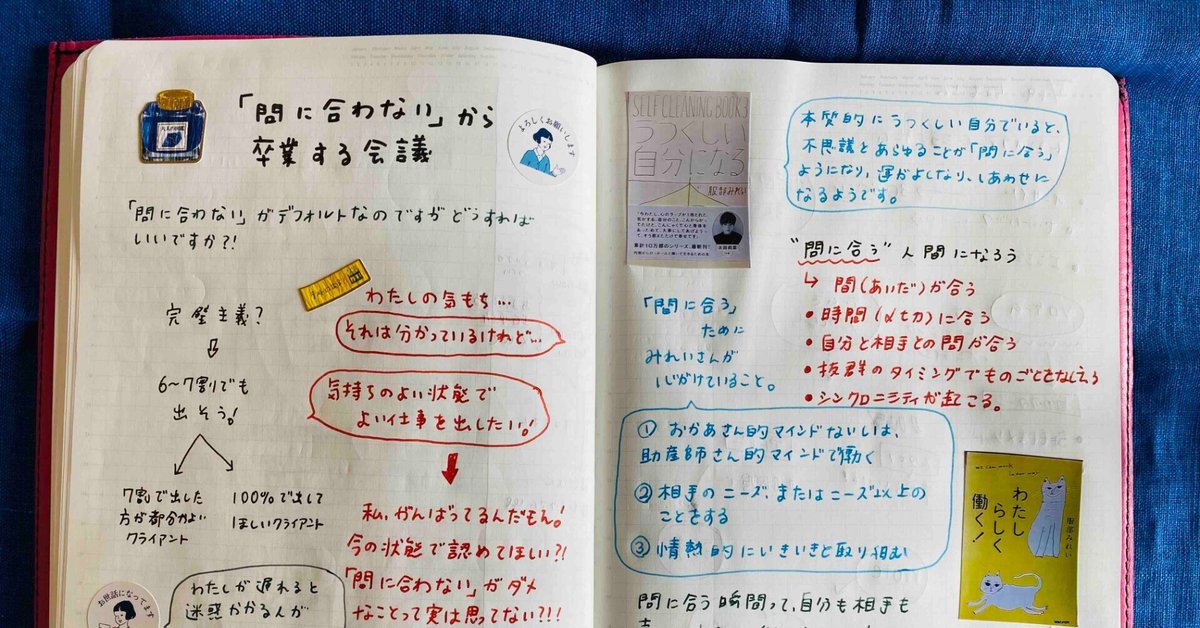 「間に合わない」から
卒業する会議
よろしくお願いします
「間に合わない」がデフォルトなのですがどうすれば
いいですか?!
完璧主義?
6〜7割でも
出そう!
7割で出した
方が都合がよい
クライアント
100%で出して
ほしいクライアント
わたしの気もち…
それは分かっているけれど…
気持ちのよい状態で
よい仕事を出したい!
私、がんばってるんだもん!
今の状態で認めてほしい?!
「間に合わない」がダメ
なことって実は思ってない?!!
お世話になってます
わたしが遅れると
迷惑かかるんが
SELF CLEANING BOOK 3
うつくしい
自分になる
服部みれい
累計10万部のシリーズ、最新刊!
本質的にうつくしい自分でいると、
不思議とあらゆることが「間に合う」
ようになり、運がよくなり、しあわせに
なるようです。
"間に合う"人間になろう
↳ 間(あいだ)が合う
• 時間(メ切)に合う
• 自分と相手との間が合う
• 抜群のタイミングでものごとをなしえる
• シンクロニシティが起こる。
「間に合う」
ために
みれいさんが
心がけていること。
① おかあさん的マインドないしは、
助産師さん的マインドで働く
② 相手のニーズ、またはニーズ以上の
ことをする
③ 情熱的にいきいきと取り組む
わたし
らしく
働く!
服部みれい
間に合う瞬間って、自分も相手も